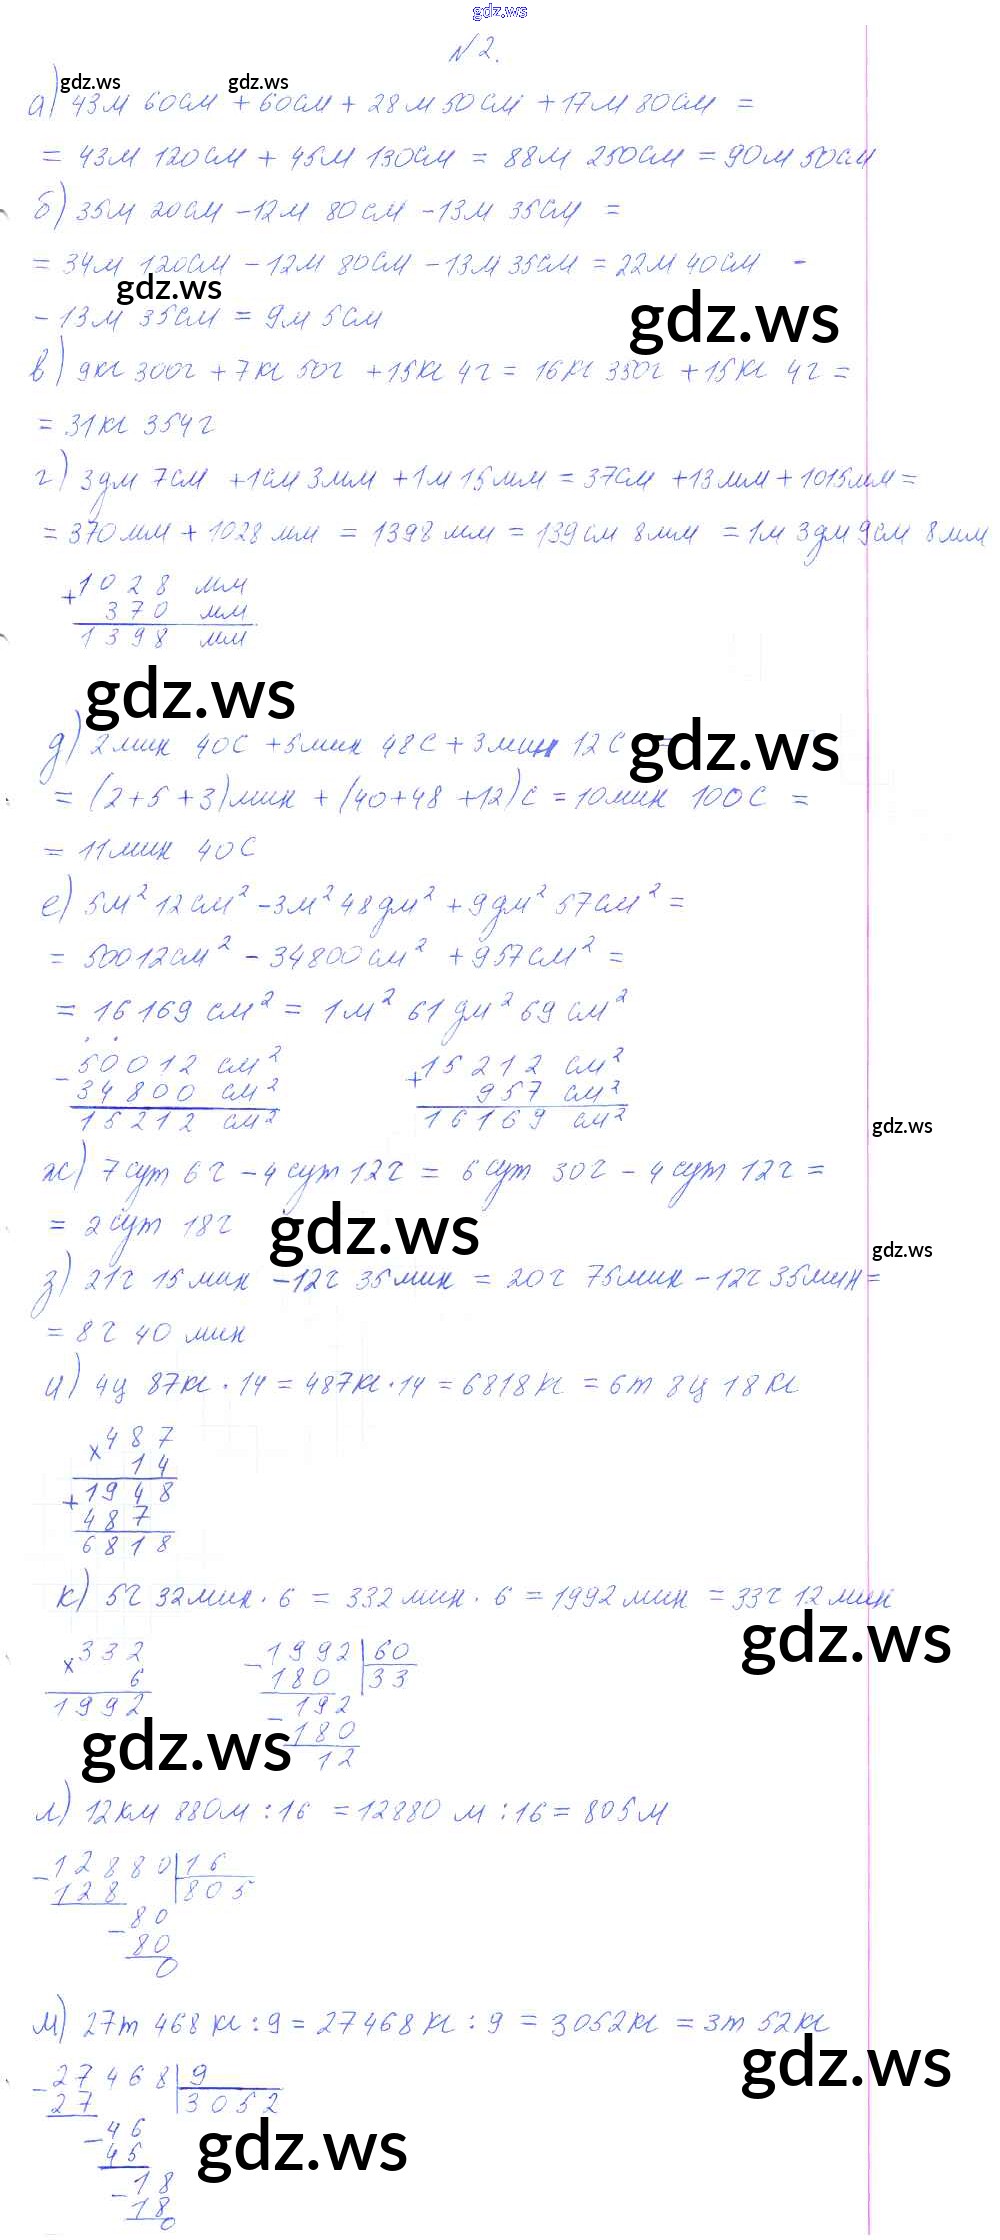 gdz.ws
№ 2.
gdz.ws gdz.ws
а) 43м 60см + 60см + 28м 50см + 17м 80см =
= 43м 120см + 45м 130см = 88м 250см = 90м 50см
б) 35м 20см - 12м 80см - 13м 35см =
= 34м 120см - 12м 80см - 13м 35см = 22м 40см -
gdz.ws
- 13м 35см = 9м 5см
gdz.ws
в) 9кг 300г + 7кг 50г + 15кг 4г = 16кг 350г + 15кг 4г =
= 31кг 354г
г) 3дм 7см + 1см 3мм + 1м 15мм = 37см + 13мм + 1015мм =
= 370мм + 1028мм = 1398мм = 139см 8мм = 1м 3дм 9см 8мм
+1028 мм
370 мм
1398 мм
gdz.ws
д) 2мин 40с + 5мин 48с + 3мин 12с =
gdz.ws
= (2+5+3)мин + (40+48+12)с = 10мин 100с =
= 11мин 40с
е) 5м² 12см² - 3м² 48дм² + 9дм² 57см² =
= 50012см² - 34800см² + 957см² =
= 16169 см² = 1м² 61 дм² 69 см²
-50012 см² +15212 см²
34800 см² 957 см²
15212 см² 16169 см²
gdz.ws
ж) 7сут 6ч - 4сут 12ч = 6сут 30ч - 4сут 12ч =
= 2сут 18ч
gdz.ws
gdz.ws
з) 21ч 15мин - 12ч 35мин = 20ч 75мин - 12ч 35мин =
= 8ч 40 мин
и) 4ц 87кг · 14 = 487кг · 14 = 6818кг = 6т 8ц 18кг
×487
14
+1948
487
6818
к) 5ч 32мин · 6 = 332мин · 6 = 1992мин = 33ч 12мин
gdz.ws
×332 -1992|60
6 180 |33
1992 -192
gdz.ws
180
12
л) 12км 880м : 16 = 12880 м : 16 = 805м
-12880|16
128 |805
-80
80
0
м) 27т 468кг : 9 = 27468кг : 9 = 3052кг = 3т 52кг
gdz.ws
-27468|9
27 |3052
-46
gdz.ws
45
-18
18
0